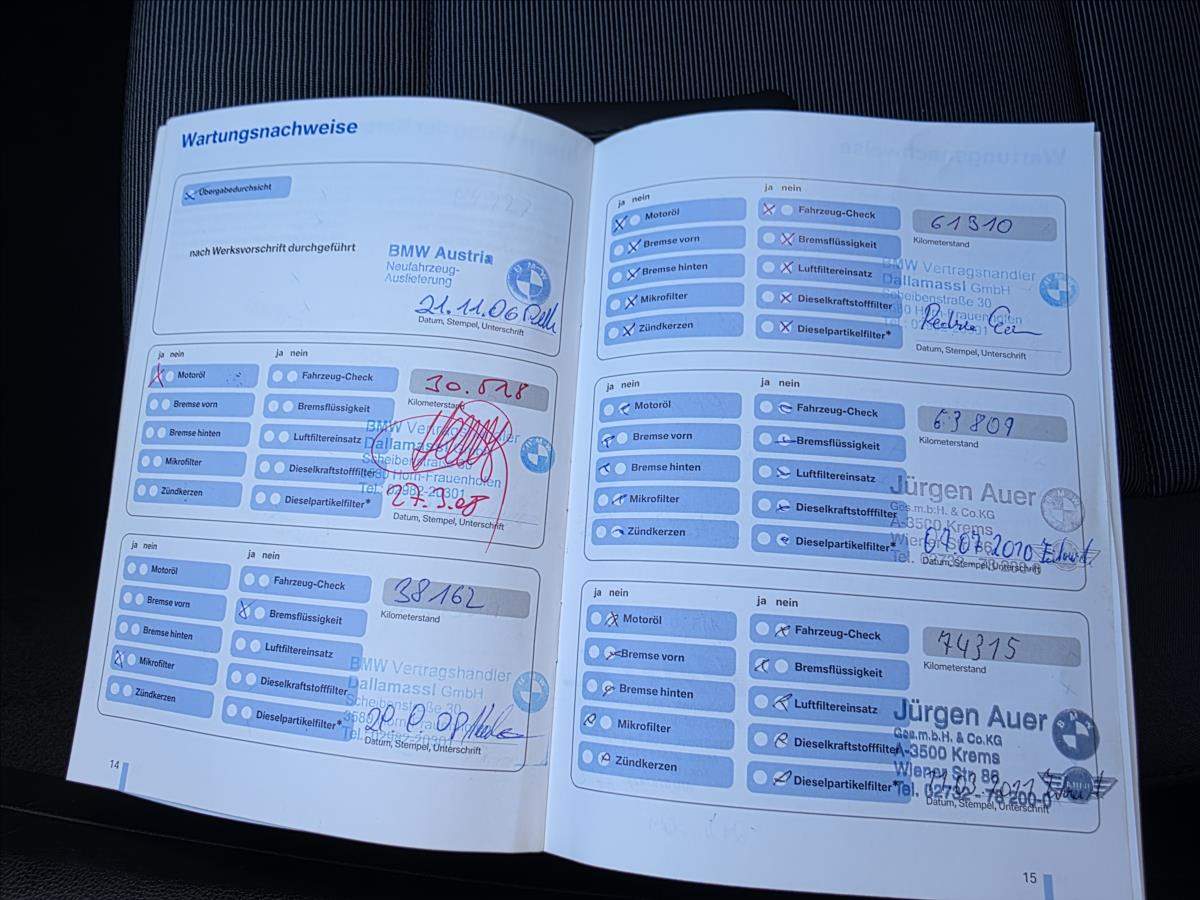 Wartungsnachweise
Übergabedurchsicht
nach Werksvorschrift durchgeführt
BMW Austria
Neufahrzeug-
Auslieferung
21.11.06
Datum, Stempel, Unterschrift
ja nein
ja nein
Motoröl
Fahrzeug-Check
30.818
Kilometerstand
Bremse vorn
Bremsflüssigkeit
Bremse hinten
Luftfiltereinsatz
Mikrofilter
Dieselkraftstofffilter
Zündkerzen
Dieselpartikelfilter*
BMW Vertragshändler
Dallamassl
Scheibenstraße 30
3580 Horn-Frauenhofen
Tel.: 02982-20301
27.3.08
Datum, Stempel, Unterschrift
ja nein
ja nein
Motoröl
Fahrzeug-Check
38162
Kilometerstand
Bremse vorn
Bremsflüssigkeit
Bremse hinten
Luftfiltereinsatz
Mikrofilter
Dieselkraftstofffilter
Zündkerzen
Dieselpartikelfilter*
BMW Vertragshändler
Dallamassl GmbH
Scheibenstraße 30
Datum, Stempel, Unterschrift
14
ja nein
ja nein
Motoröl
Fahrzeug-Check
61310
Kilometerstand
Bremse vorn
Bremsflüssigkeit
Bremse hinten
Luftfiltereinsatz
Mikrofilter
Dieselkraftstofffilter
Zündkerzen
Dieselpartikelfilter*
BMW Vertragshändler
Dallamassl GmbH
Scheibenstraße 30
Datum, Stempel, Unterschrift
ja nein
ja nein
Motoröl
Fahrzeug-Check
63809
Kilometerstand
Bremse vorn
Bremsflüssigkeit
Bremse hinten
Luftfiltereinsatz
Mikrofilter
Dieselkraftstofffilter
Zündkerzen
Dieselpartikelfilter*
Jürgen Auer
Ges.m.b.H. & Co.KG
A-3500 Krems
Wiener Str. 86
Tel. 02732 - 78 200-0
07.07.2010
Datum, Stempel, Unterschrift
ja nein
ja nein
Motoröl
Fahrzeug-Check
74315
Kilometerstand
Bremse vorn
Bremsflüssigkeit
Bremse hinten
Luftfiltereinsatz
Mikrofilter
Dieselkraftstofffilter
Zündkerzen
Dieselpartikelfilter*
Jürgen Auer
Ges.m.b.H. & Co.KG
A-3500 Krems
Wiener Str. 86
Tel. 02732 - 78 200-0
Datum, Stempel, Unterschrift
15